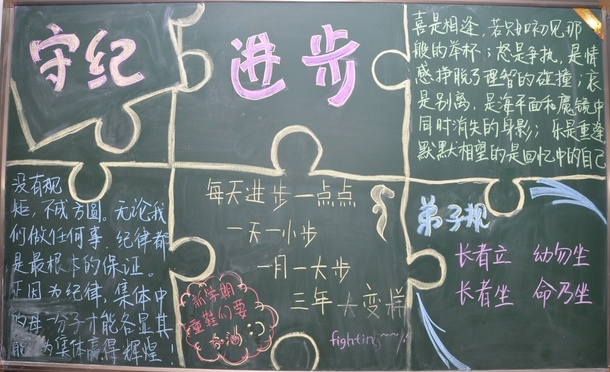 守纪
进步
喜是相逢，若只如初见那
般的举杯；怒是争执，是情
感挣脱了理智的碰撞；哀
是别离，是海平面和魔镜中
同时消失的身影；乐是重逢
默默相望的是回忆中的自己
没有规
矩，不成方圆。无论我
们做任何事，纪律都
是最根本的保证。
正因为纪律，集体中
的每一分子才能各显其
能，为集体赢得辉煌！
每天进步一点点
一天一小步
一月一大步
三年大变样
新学期
童鞋们要
加油
fighting~~!
弟子规
长者立 幼勿坐
长者坐 命乃坐